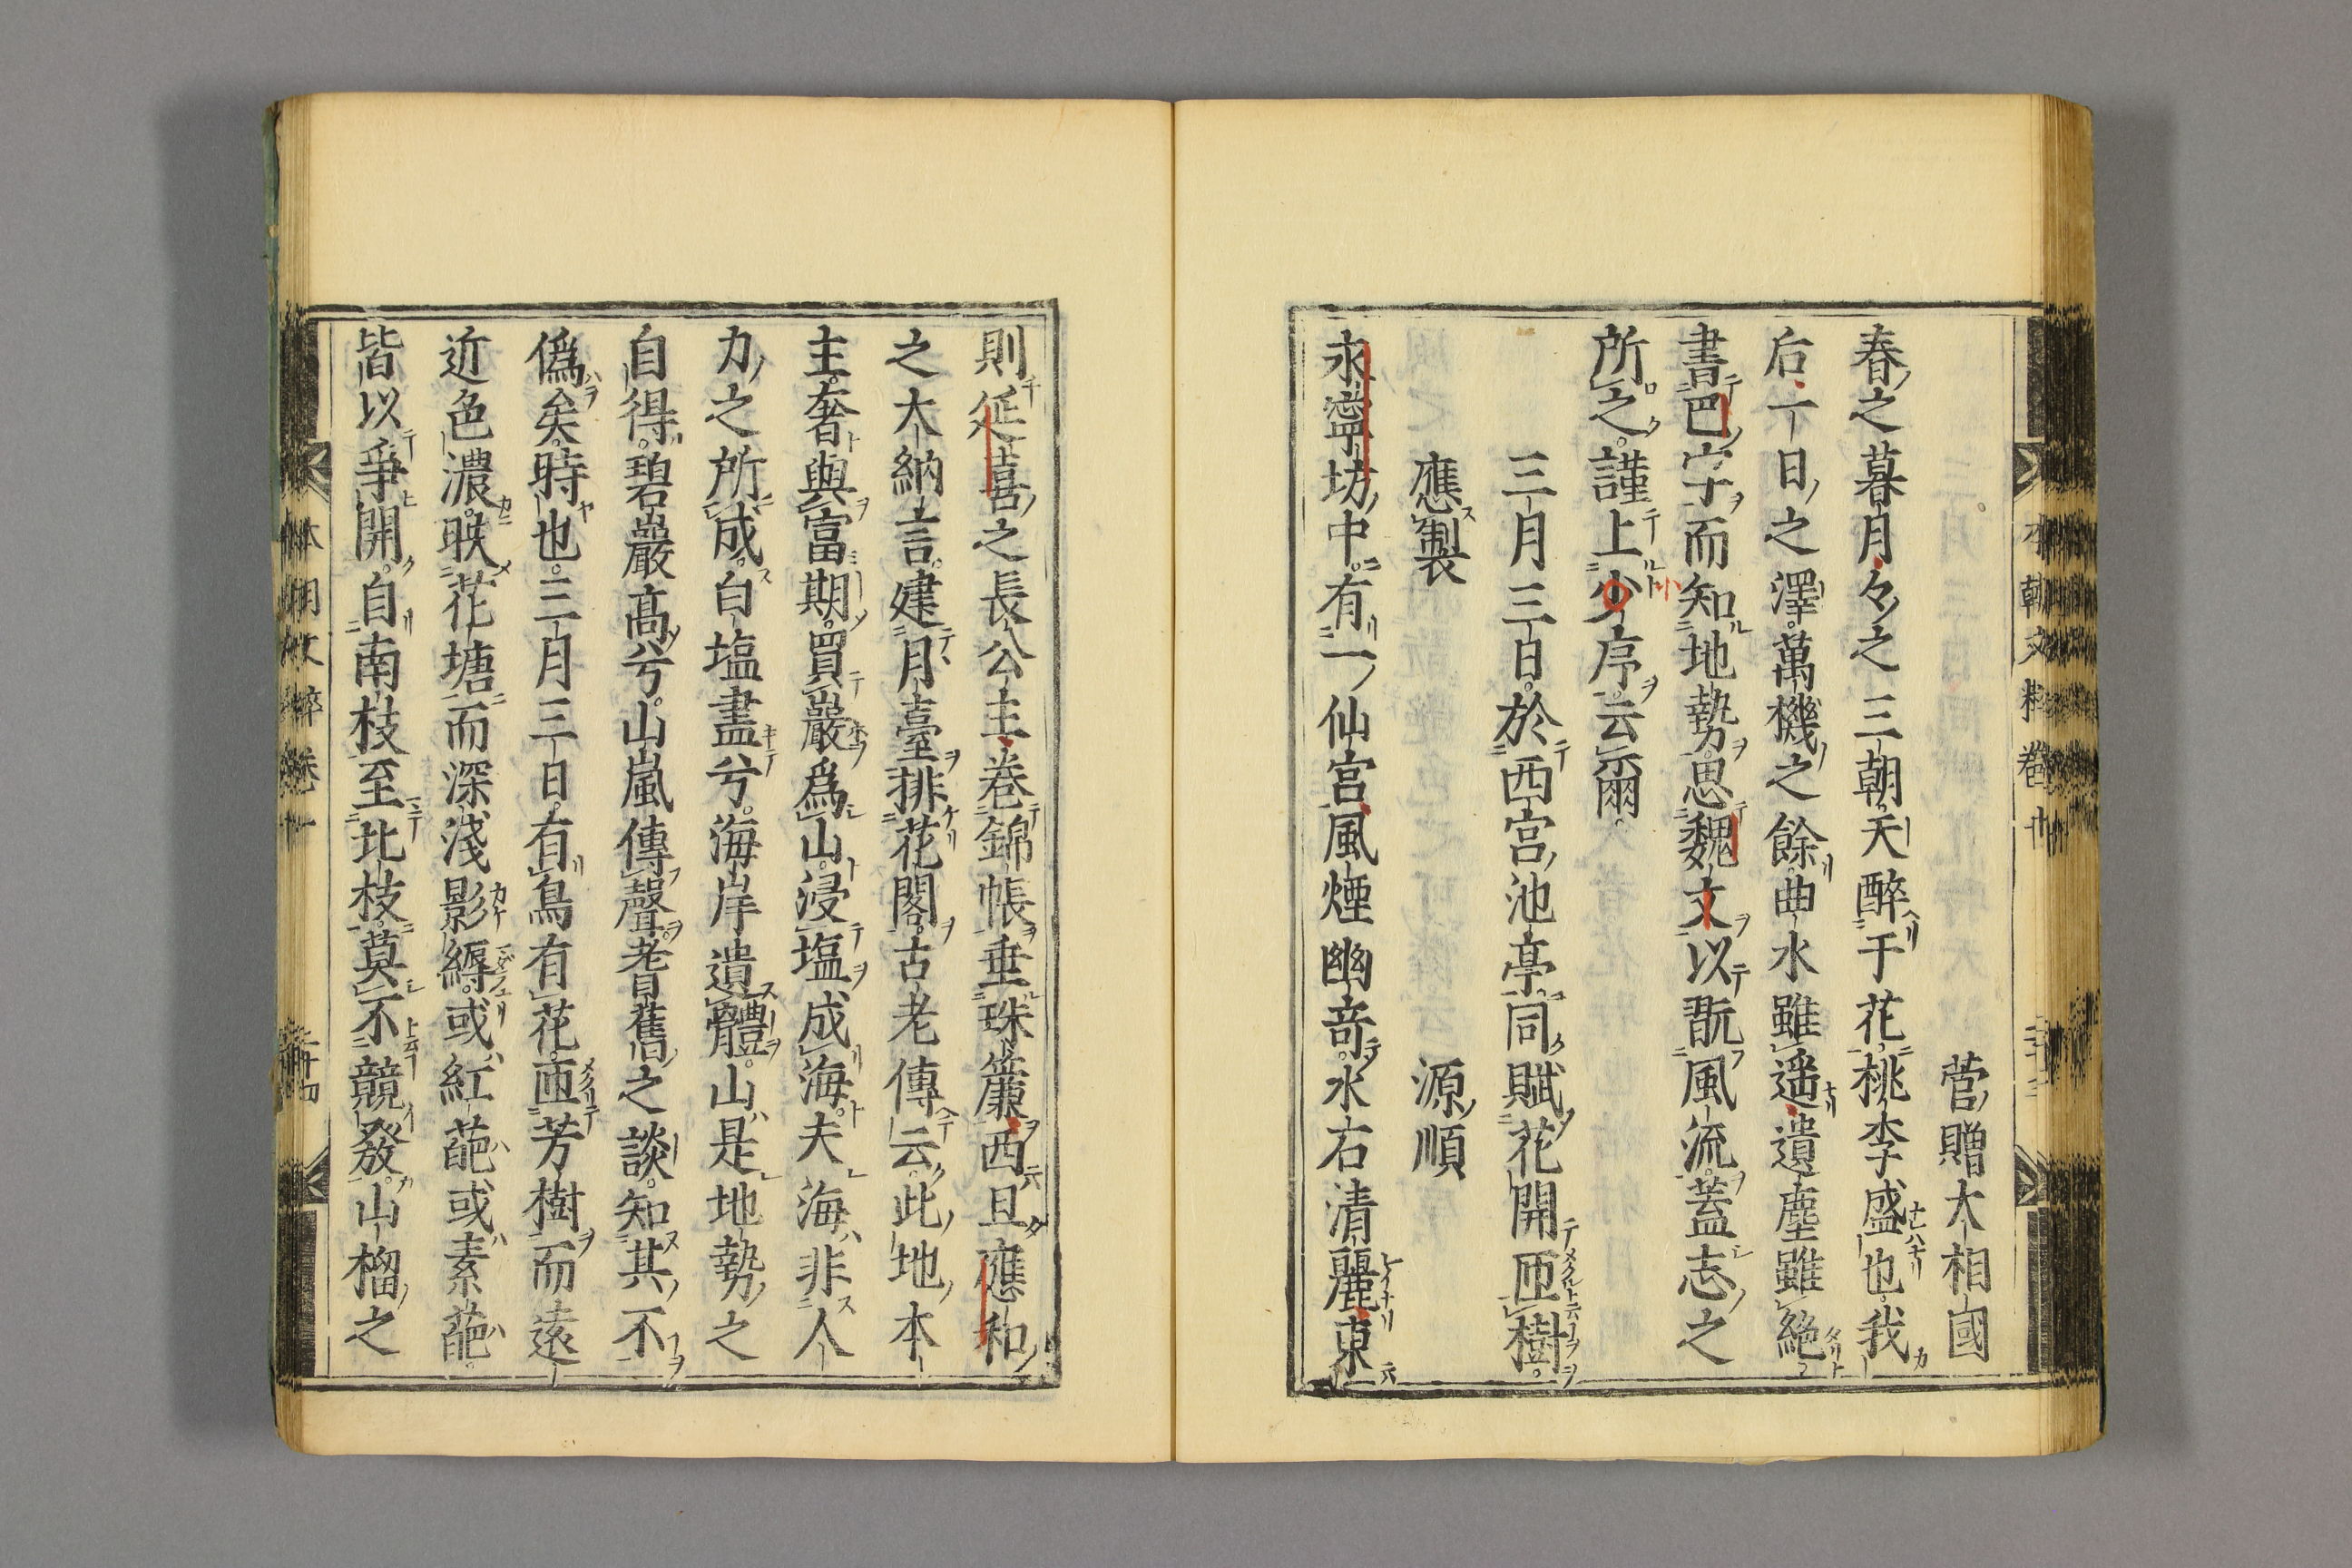 菅贈大相國
春之暮月々之三朝天醉于花桃李盛也我
后一日之澤萬機之餘曲水雖遥遺塵雖絶
書巴字而知地勢思魏文以翫風流蓋志之
所之謹上小序云爾
三月三日於西宮池亭同賦花開匝樹
應製　源順
永寧坊中有一仙宮風煙幽奇水石清麗東
則延喜之長公主巻錦帳垂珠簾西且應和
之大納言建月臺排花閣古老傳云此地本
主奢與富期買巖爲山浸塩成海夫海非人
力之所成白塩盡兮海岸遺體山是地勢之
自得碧巖高兮山嵐傳聲耆舊之談知其不
僞矣時也三月三日有鳥有花匝芳樹而遠
近色濃暎花塘而深淺影縟或紅葩或素葩
皆以爭開自南枝至北枝莫不競發山榴之
本朝文粋巻十